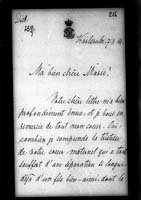 216
Carlsruhe
Ma bien chère Marie!
Votre chère lettre m'a bien
profondément émue et je vous en
remercie de tout mon cœur. Oui
combien je comprends la tristesse
de votre cœur maternel qui a tant
souffert d'une séparation si longue
déjà d'un fils bien-aimé, dont la